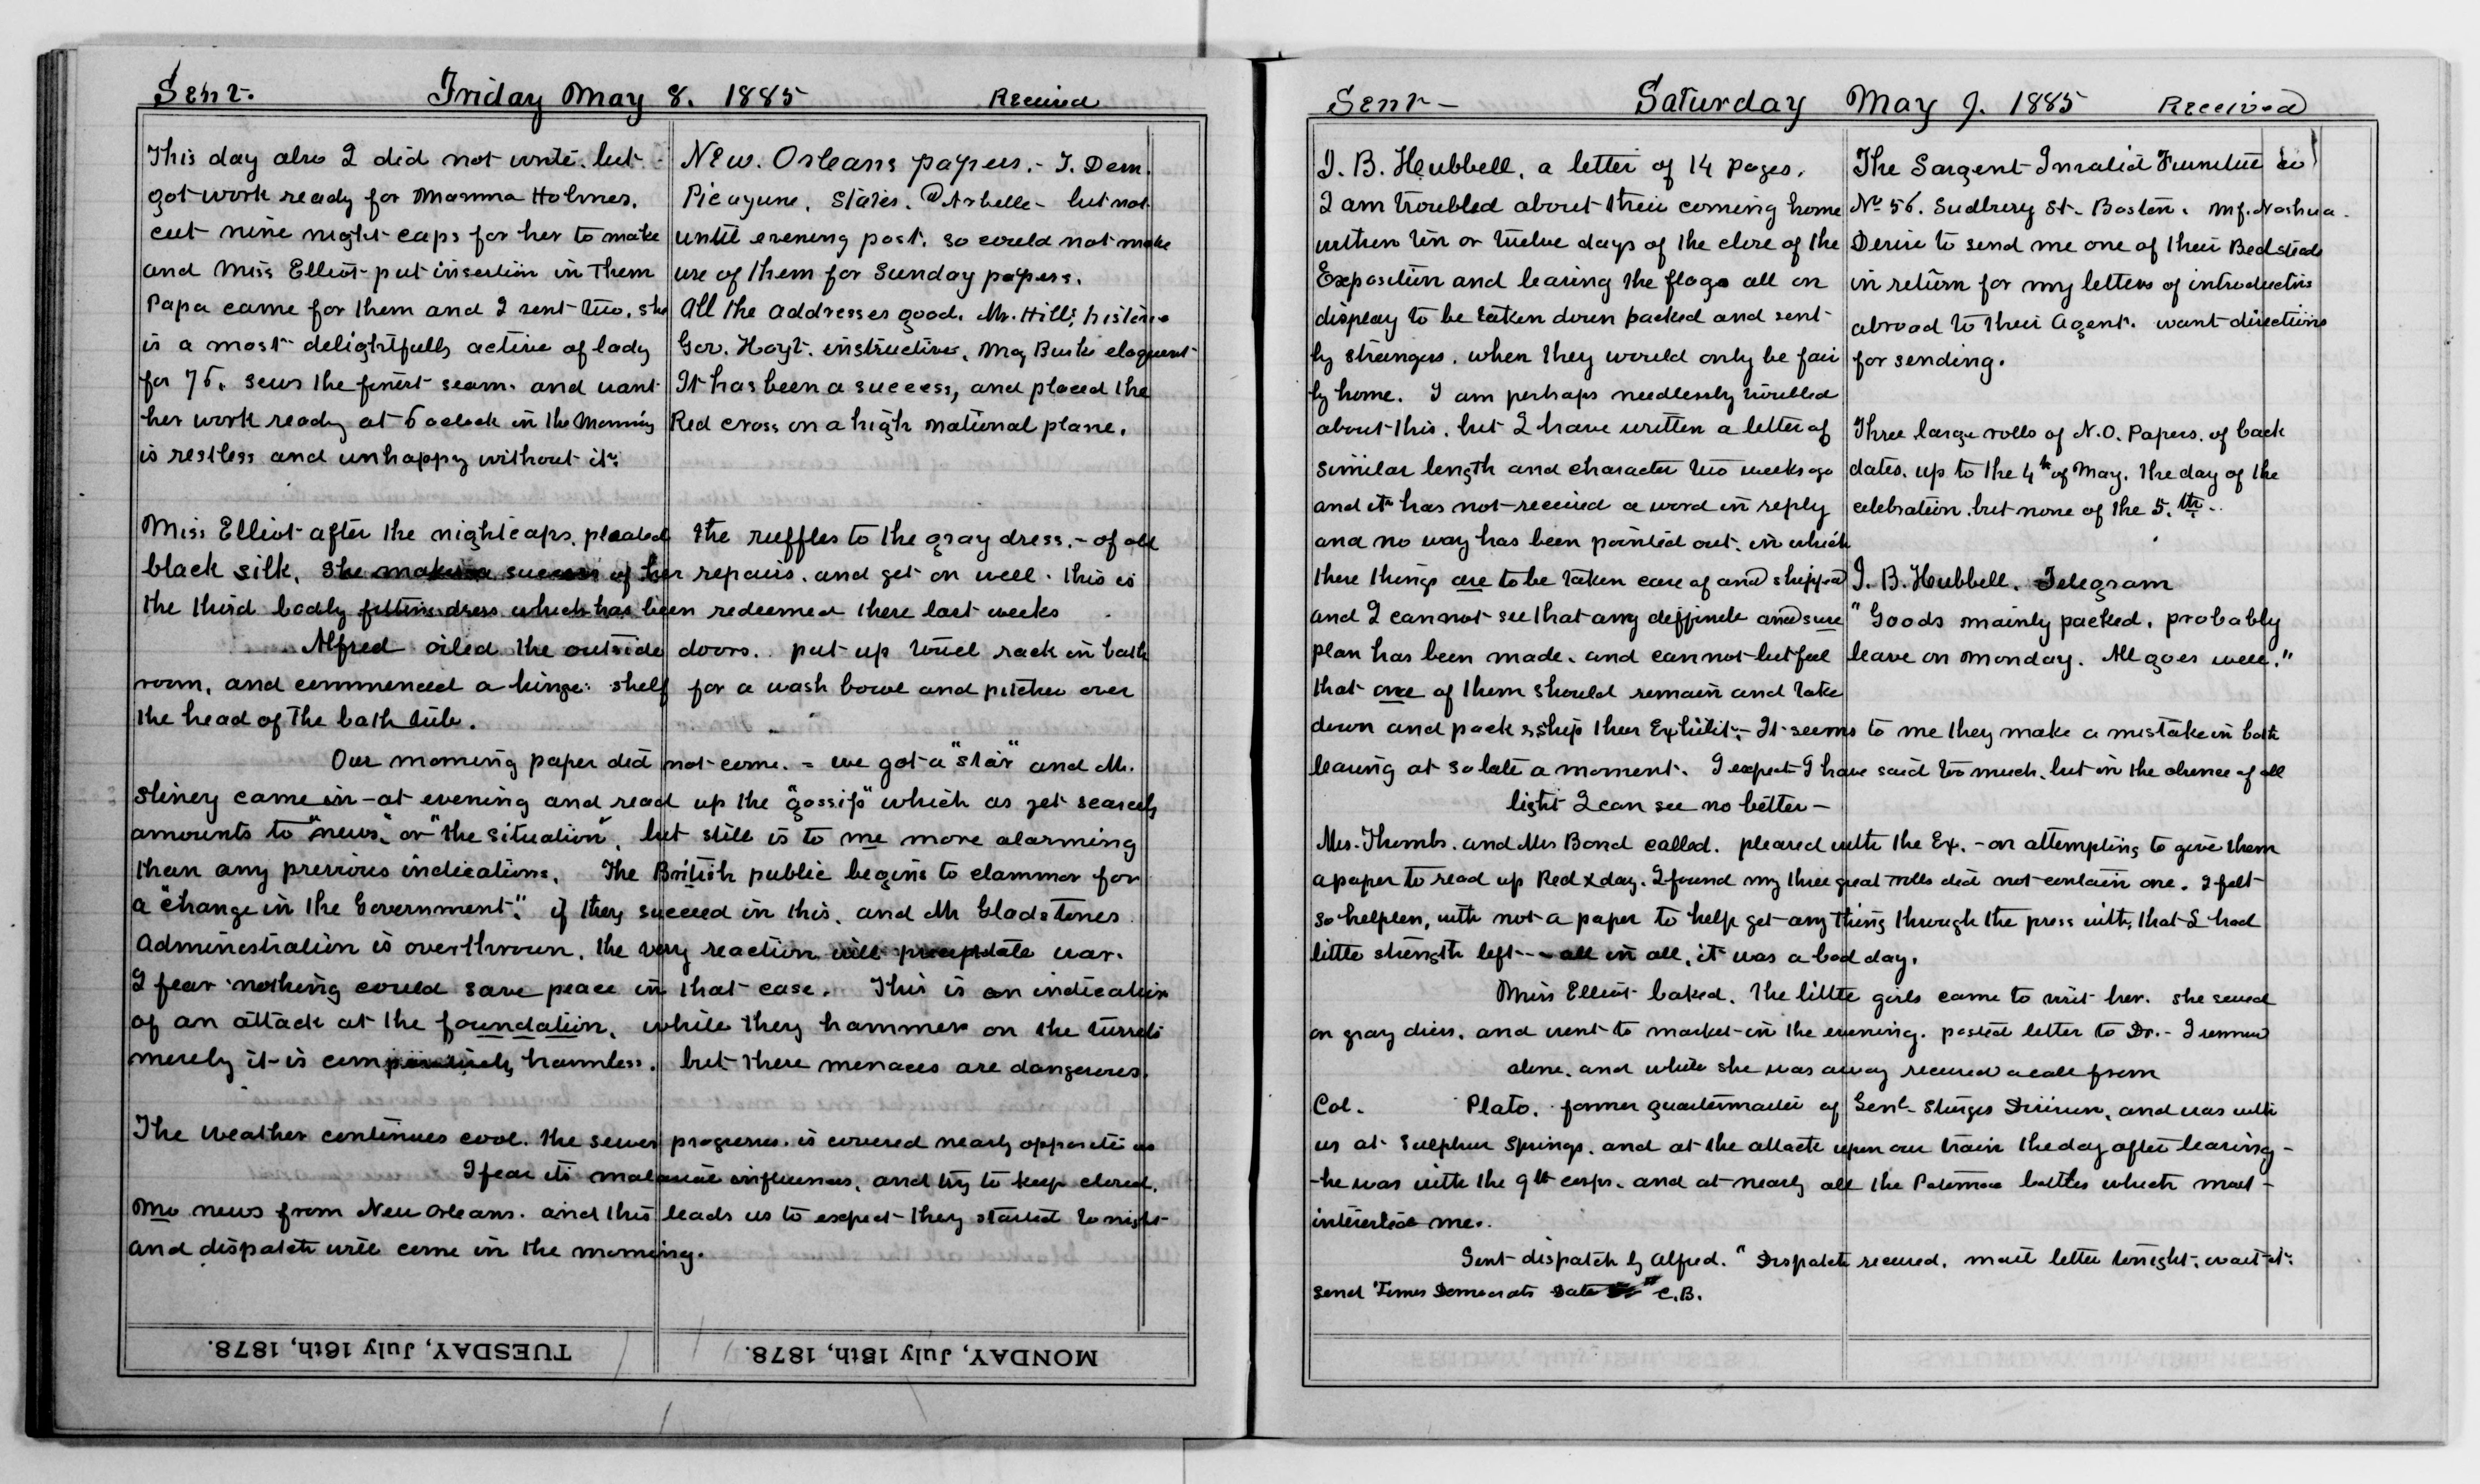 Sent. Friday May 8. 1885 Received
This day also I did not write. but
got work ready for Mamma Holmes.
cut nine night caps for her to make
and Miss Elliot put insertion in them
Papa came for them and I sent two. she
is a most delightfully active of lady
for 76. sews the finest seam. and want
her work ready at 6 oclock in the morning
is restless and unhappy without it.
New. Orleans papers. - T. Dem.
Picayune. States. @ Arbelle - but not
until evening post. so could not make
use of them for Sunday papers.
All the addresses good. Mr. Hills; historic
Gov. Hoyt. instructive, Maj Burke eloquent
It has been a success, and placed the
Red cross on a high national plane.
Miss Elliot after the nightcaps. pleated the ruffles to the gray dress. - of old
black silk. She makes a success of her repairs. and get on well. this is
the third badly fitting dress which has been redeemed these last weeks
Alfred oiled the outside doors. put up towel rack in bath
room, and commenced a hinge shelf for a wash bowl and pitcher over
the head of the bath tub.
Our morning paper did not come. - we got a "star" and Mr.
Stiney came in - at evening and read up the "gossip" which as yet scarcely
amounts to "news" or "the situation", but still is to me more alarming
than any previous indications. The British public begins to clammor for
a "change in the Government". if they succeed in this. and Mr Gladstones
Administration is overthrown. the very reaction will precipitate war.
I fear nothing could save peace in that case. This is an indication
of an attack at the foundation. while they hammer on the turrets
merely it is comparatively harmless. but these menaces are dangerous.
The weather continues cool. the sewer progresses. is covered nearly opposite us
I fear its malarial influences. and try to keep closed.
No news from New Orleans. and this leads us to expect they started tonight
and dispatch will come in the morning.
TUESDAY, July 16th, 1878. MONDAY, July 15th, 1878.
Sent - Saturday May 9. 1885 Received
J. B. Hubbell, a letter of 14 pages.
I am troubled about their coming home
within ten or twelve days of the close of the
Exposition and leaving the flags all on
display to be taken down packed and sent
by strangers. when they would only be fair
by home. I am perhaps needlessly troubled
about this. but I have written a letter of
similar length and character two weeks ago
and it has not received a word in reply
and no way has been pointed out. in which
these things are to be taken care of and shipped
and I cannot see that any deffinite and sure
plan has been made. and cannot but feel
that one of them should remain and take
The Sargent Invalid Furniture Co
No 56. Sudbury St. Boston. Mf. Nashua.
Desire to send me one of their Bedsteads
in return for my letters of introduction
abroad to their Agent. want directions
for sending.
Three large rolls of N.O. Papers. of back
dates. up to the 4th of May. the day of the
celebration. but none of the 5.th.
J. B. Hubbell. Telegram
"Goods mainly packed. probably
leave on Monday. All goes well."
down and pack & ship their Exhibit; - It seems to me they make a mistake in both
leaving at so late a moment. I expect I have said too much. but in the absence of all
light I can see no better -
Mrs. Thombs. and Mrs Bond called. pleased with the Ex. - on attempting to give them
a paper to read up Red X day. I found my three great rolls did not contain one. I felt
so helpless, with not a paper to help get any thing through the press with, that I had
little strength left - - all in all, it was a bad day.
Miss Elliot baked. The little girls came to visit her. she sewed
on gray dress. and went to market in the evening. posted letter to Dr. - I remained
alone. and while she was away received a call from
Col. Plato. former quartermaster of Genl. Sturges Division, and was with
us at Sulphur Springs. and at the attack upon our train the day after leaving -
- he was with the 9th corps. and at nearly all the Potomac battles which most -
interested me.
Sent dispatch by Alfred. "Dispatch received. mail letter tonight. wait it.
send Times Democrats Date C.B.